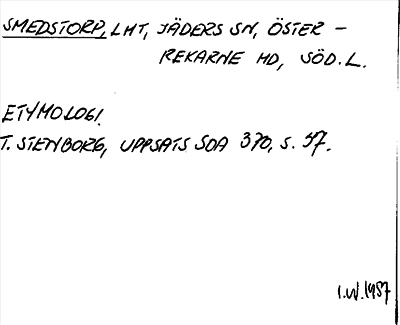 SMEDSTORP, LHT, JÄDERS SN, ÖSTER -
REKARNE HD, SÖD. L.
ETYMOLOGI.
T. STENBORG, UPPSATS SOA 370, S. 57.
I.W.1987